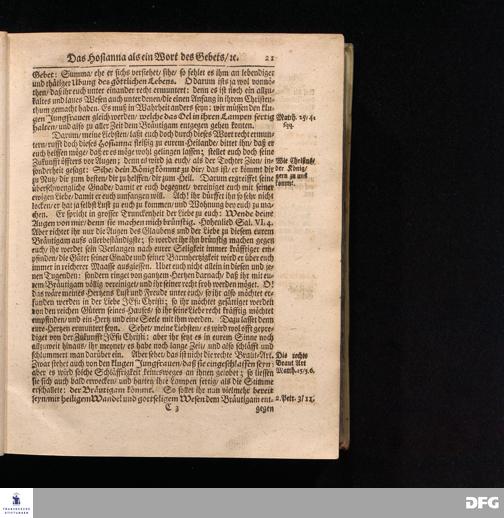 Das Hosianna als ein Wort des Gebets/ ꝛc. 21
Gebet: Summa/ ehe er sichs versiehet/ sihe/ so fehlet es ihm an lebendiger
und thätiger Ubung des göttlichen Lebens. O darum ists ja wol vonnö-
then/ daß ihr euch unter einander recht ermuntert: denn es ist noch ein allzu-
kaltes und laues Wesen auch unter denen die einen Anfang in ihrem Christen-
thum gemacht haben. Es muß in Wahrheit anders seyn: wir müssen den klu-
gen Jungfrauen gleich werden/ welche das Oel in ihren Lampen fertig
halten/ und also zu aller Zeit dem Bräutigam entgegen gehen konten.
Matth. 25/4.
seq.
Darum/ meine Liebsten/ laßt euch doch durch dieses Wort recht ermun-
tern/ rufft doch dieses Hosianna fleißig zu eurem Heilande/ bittet ihn/ daß er
euch helffen möge/ daß er euch wohl gelingen lassen; stellet euch doch seine
Zukunfft öffters vor Augen; denn es wird ja euch/ als der Tochter Zion/ ins-
sonderheit gesagt: Sihe/ dein König kömmt zu dir/ das ist/ er kömmt dir
zu Nutz/ dir zum besten/ dir zu helffen/ dir zum Heil. Darum ergreiffet seine
überschwengliche Gnade/ damit er euch begegnet/ vereiniget euch mit seiner
ewigen Liebe/ damit er euch umfangen will. Ach! ihr dürffet ihn so sehr nicht
locken/ er hat ja selbst Lust zu euch zu kommen/ und Wohnung bey euch zu ma-
chen. Er spricht in grosser Trunckenheit der Liebe zu euch: Wende deine
Augen von mir/ denn sie machen mich brünstig. Hohenlied Sal. VI. 4.
Wie Christus/
der König/
gern zu uns
kommt.
Aber richtet ihr nur die Augen des Glaubens und der Liebe zu diesem eurem
Bräutigam aufs allerbeständigste; so werdet ihr ihn brünstig machen gegen
euch/ ihr werdet sein Verlangen nach eurer Seligkeit immer kräfftiger em-
pfinden/ die Güter seiner Gnade und seiner Barmhertzigkeit wird er über euch
immer in reicherer Maasse ausgiessen. Ubet euch nicht allein in diesen und je-
nen Tugenden: sondern ringet von gantzem Hertzen darnach/ daß ihr mit eu-
rem Bräutigam völlig vereiniget/ und ihr seiner recht froh werden möget. O!
das wäre meines Hertzens Lust und Freude unter euch/ so ihr also möchtet er-
funden werden in der Liebe JEsu Christi; so ihr möchtet gesättiget werden
von den reichen Gütern seines Hauses/ so ihr seine Liebe recht kräfftig möchtet
empfinden/ und ein Hertz und eine Seele mit ihm werden. Dazu lasset denn
eure Hertzen ermuntert seyn. Sehet/ meine Liebsten/ es wird wol offt gepre-
diget von der Zukunfft JEsu Christi: aber ihr setzt es in eurem Sinne noch
allzuweit hinaus/ ihr meynet/ es habe noch lange Zeit/ und also schläfft und
schlummert man darüber ein. Aber sehet/ das ist nicht die rechte Braut-Art.
Zwar stehet auch von den klugen Jungfrauen/ daß sie eingeschlaffen seyn:
aber es wird solche Schläffrigkeit keinesweges an ihnen gelobet; so liessen
sie sich auch bald erwecken/ und hatten ihre Lampen fertig/ als die Stimme
erschallete: der Bräutigam kömmt. So sollet ihr nun vielmehr bereit
Die rechte
Braut Art
Matth. 25/5. 6.
seyn/ mit heiligem Wandel und gottseligem Wesen dem Bräutigam ent-
2. Petr. 3/11.
C 3 gegen
FRANCKESCHE
STIFTUNGEN
DFG